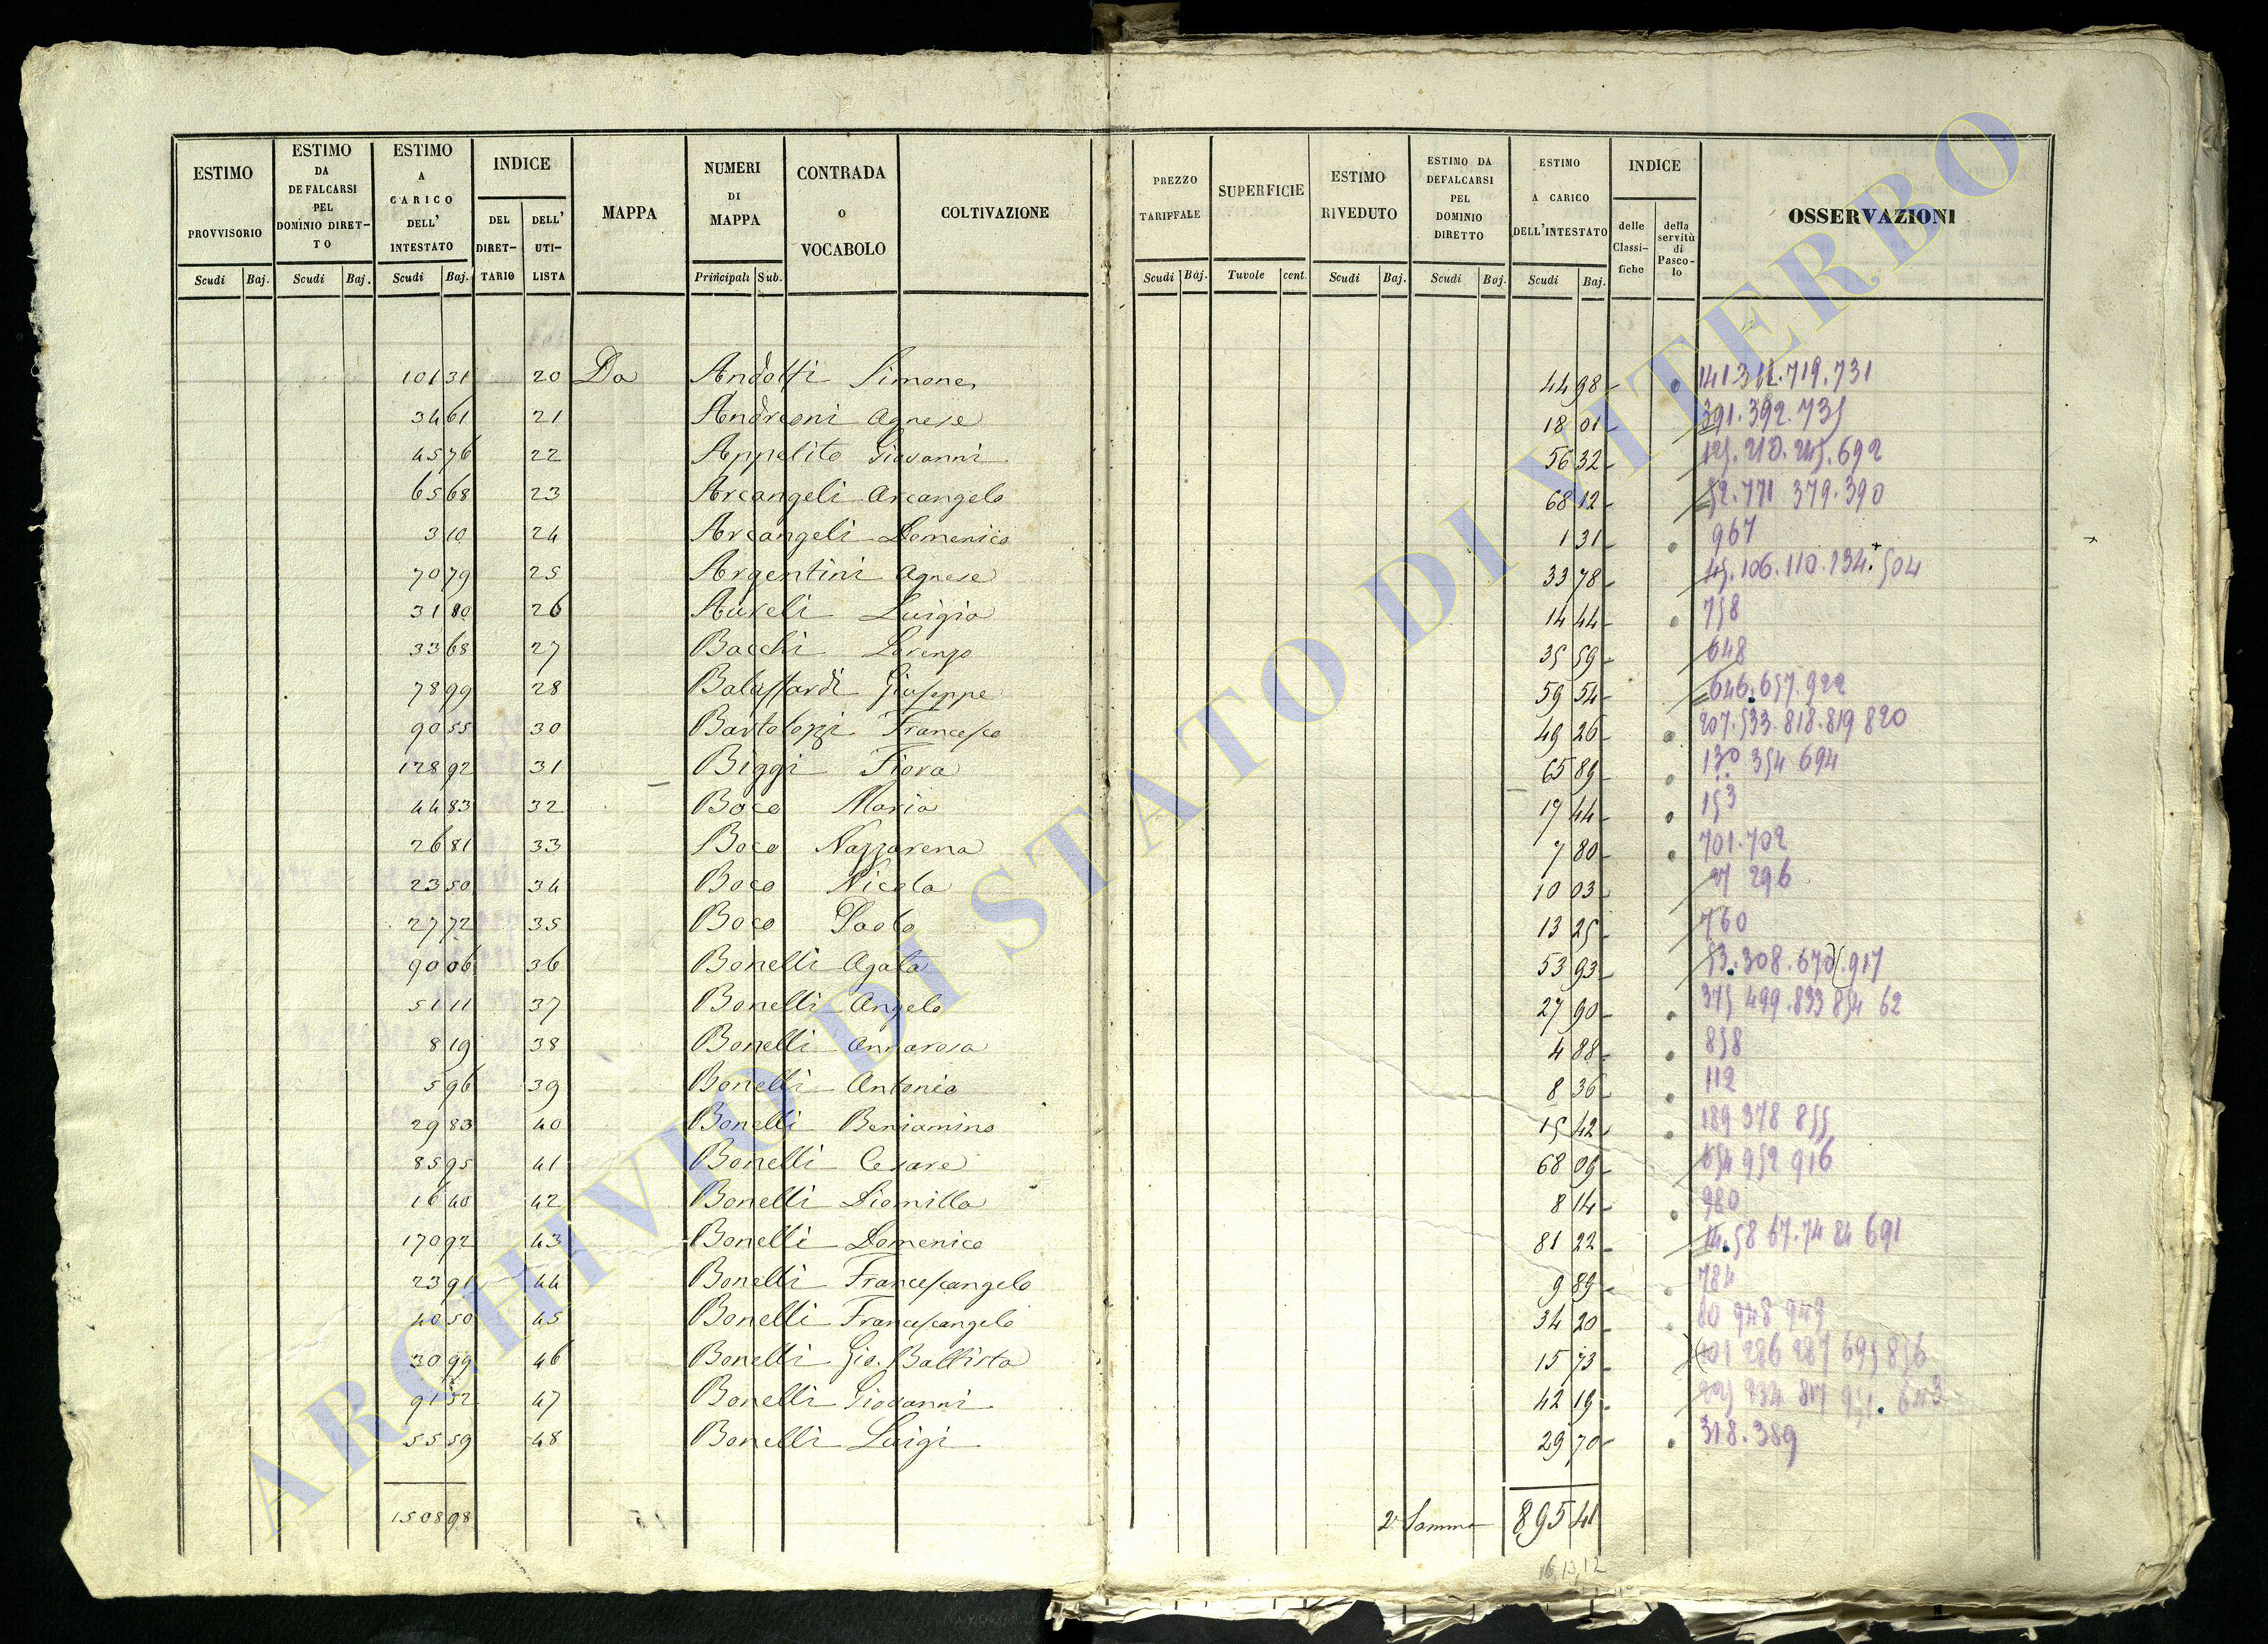 ESTIMO PROVVISORIO
ESTIMO DA DEFALCARSI PEL DOMINIO DIRETTO
ESTIMO A CARICO DELL' INTESTATO
INDICE
DEL DIRETTARIO
DELL' UTILISTA
MAPPA
NUMERI DI MAPPA
CONTRADA o VOCABOLO
COLTIVAZIONE
PREZZO TARIFFALE
SUPERFICIE
ESTIMO RIVEDUTO
ESTIMO DA DEFALCARSI PEL DOMINIO DIRETTO
ESTIMO A CARICO DELL'INTESTATO
INDICE
delle Classifiche
della servitù di Pascolo
OSSERVAZIONI
Scudi Baj. Scudi Baj. Scudi Baj. Principali Sub. Scudi Baj. Tavole cent. Scudi Baj. Scudi Baj. Scudi Baj.
101 31 20 Da Andolfi Simone 44 98 141 312. 719. 731
34 61 21 Andreoni Agnese 18 01 391. 392. 735
45 76 22 Appolito Giovanni 56 32 692
65 68 23 Arcangeli Arcangelo 68 12 52. 771 379. 390
3 10 24 Arcangeli Domenico 1 31 967
70 79 25 Argentini Agnese 33 78 45. 106. 110. 234. 504
31 80 26 Aureli Luigia 14 44 758
33 68 27 Bacchi Lorenzo 35 59 648
78 99 28 Balassardi Giuseppe 59 54 646. 657. 922
90 55 30 Bartolozzi Francesco 49 26 207. 533. 818. 819 820
128 92 31 Biggi Fiora 65 89 130 354 694
44 83 32 Boco Maria 17 44 153
26 81 33 Boco Nazzarena 7 80 701. 702
23 50 34 Boco Nicola 10 03 27 296
27 72 35 Boco Paolo 13 25 760
90 06 36 Bonelli Agata 53 93 53. 308. 670 917
51 11 37 Bonelli Angelo 27 90 375 499. 833 854 62
8 19 38 Bonelli Annarosa 4 88 858
5 96 39 Bonelli Antonio 8 36 112
29 83 40 Bonelli Beniamino 15 42 189 378 855
85 95 41 Bonelli Cesare 68 09 952 916
16 40 42 Bonelli Diomilla 8 14 980
170 92 43 Bonelli Domenico 81 22 14. 58 67. 74 84 691
23 91 44 Bonelli Francescangelo 9 89 784
40 50 45 Bonelli Francescangelo 34 20 948 949
30 99 46 Bonelli Gio. Battista 15 73 286 287 695 856
91 52 47 Bonelli Giovanni 42 19
55 59 48 Bonelli Luigi 29 70 318. 389
1508 98 2ª Somma 895 41
ARCHIVIO DI STATO DI VITERBO